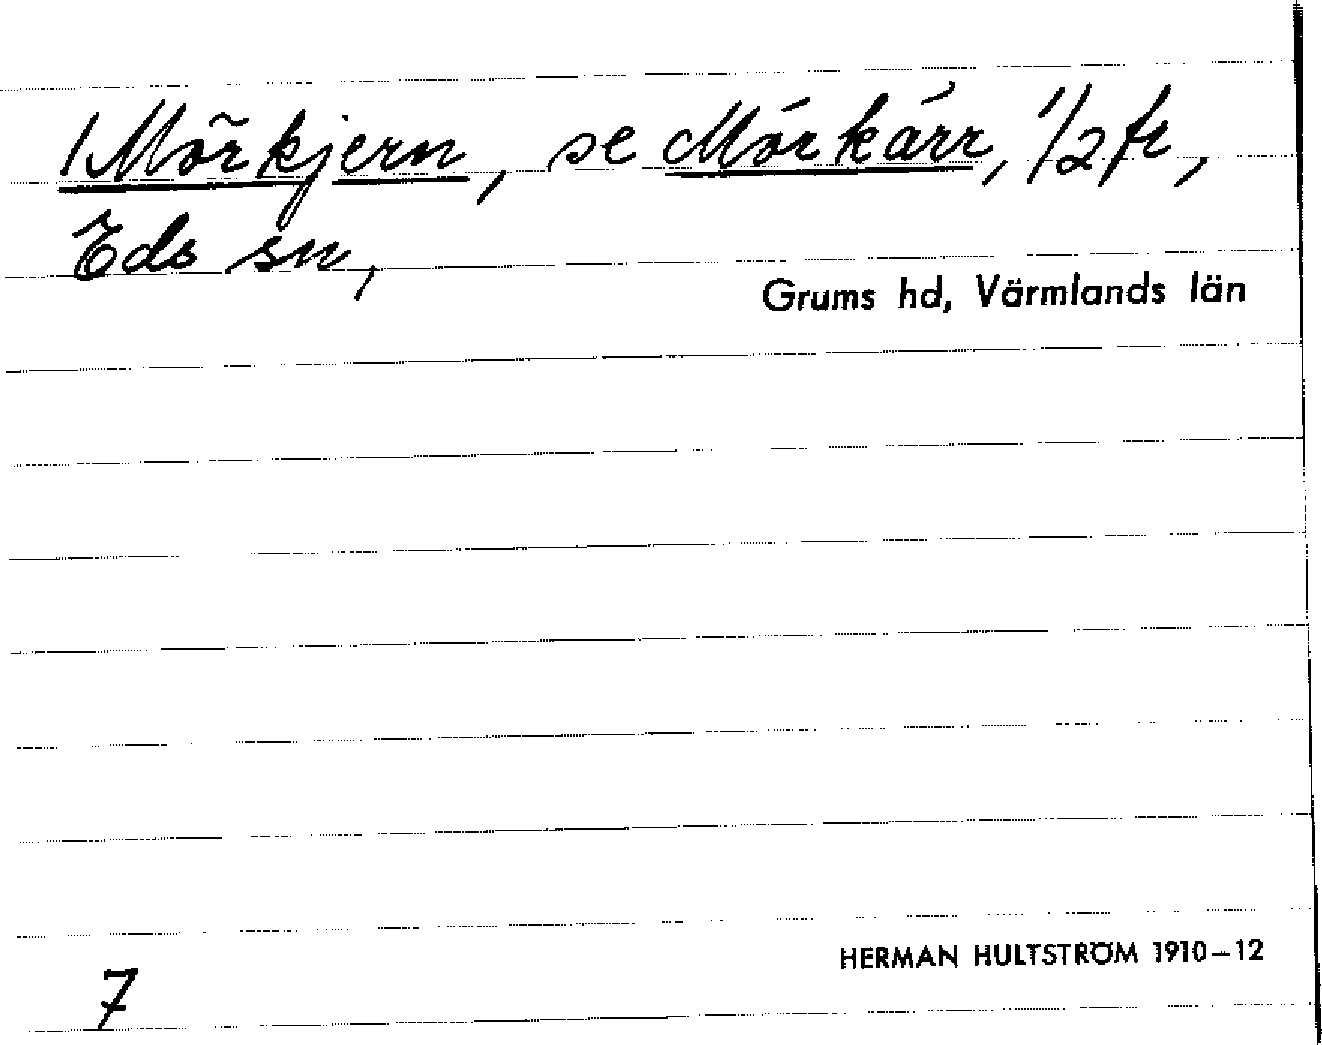 Mörkjern, se Mörkärr, 1/2 fr,
Eds sn,
Grums hd, Värmlands län
7
HERMAN HULTSTRÖM 1910-12